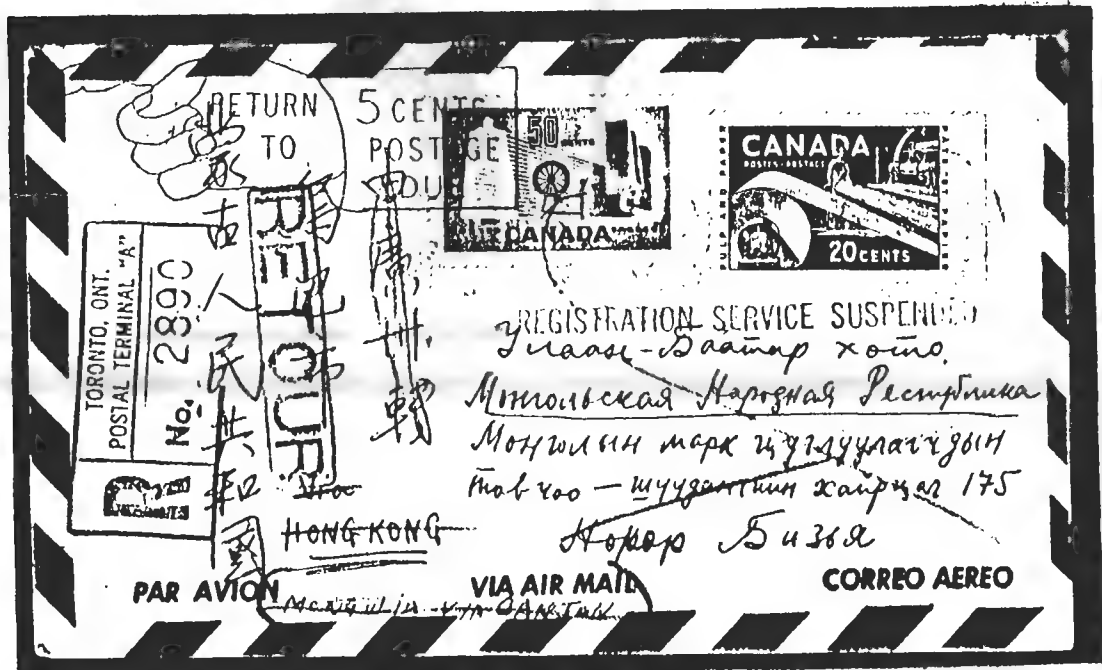 RETURN
TO
5 CENTS
POSTAGE
DUE
50 CENTS
CANADA
CANADA
POSTES-POSTAGE
20 CENTS
PULP AND PAPER
TORONTO, ONT.
POSTAL TERMINAL "A"
No. 2890
R
RETOUR
蒙古人民共和國
廣州轉
REGISTRATION SERVICE SUSPENDED
Улаан-Баатар хото.
Монгольская Народная Республика
Монголын марк цуглуулагчдын
товчоо — шуудангийн хайрцаг 175
Нөхөр Бизья
HONG KONG
PAR AVION
VIA AIR MAIL
CORREO AEREO
MONGOLIA VIA CANTON